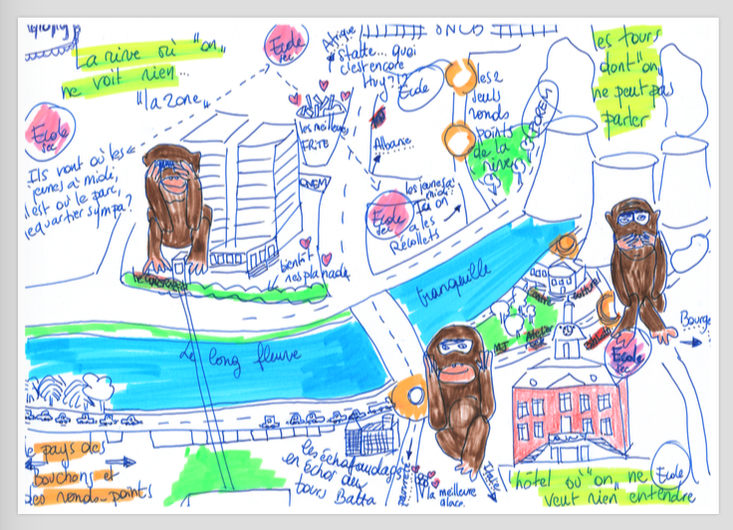 La rive où "on"
ne voit rien...
"la zone"
Ecole
sec
Afrique
state... quoi
c'est encore
Huy?!?
Ecole
les 2
seuls
ronds
points
de la
rive
FOREM
les tours
dont "on"
ne peut pas
parler
Ecole
sec
Ils vont où les
jeunes à midi,
il est où le parc,
le quartier sympa?
les meilleures
FRITE
ONEM
Albanie
Ecole
sec
les jeunes à
midi
ici on
a les
Récollets
bientôt
l'esplanade
tranquille
Le long fleuve
centre culturel
MJ
Atelier
Rock
Ecole
sec
Bourge
le pays des
Bouchons et
des ronds-points
les échafaudages
en échos aux
tours Batta
la meilleure
glace.
l'hôtel où "on" ne
veut rien entendre
Ecole